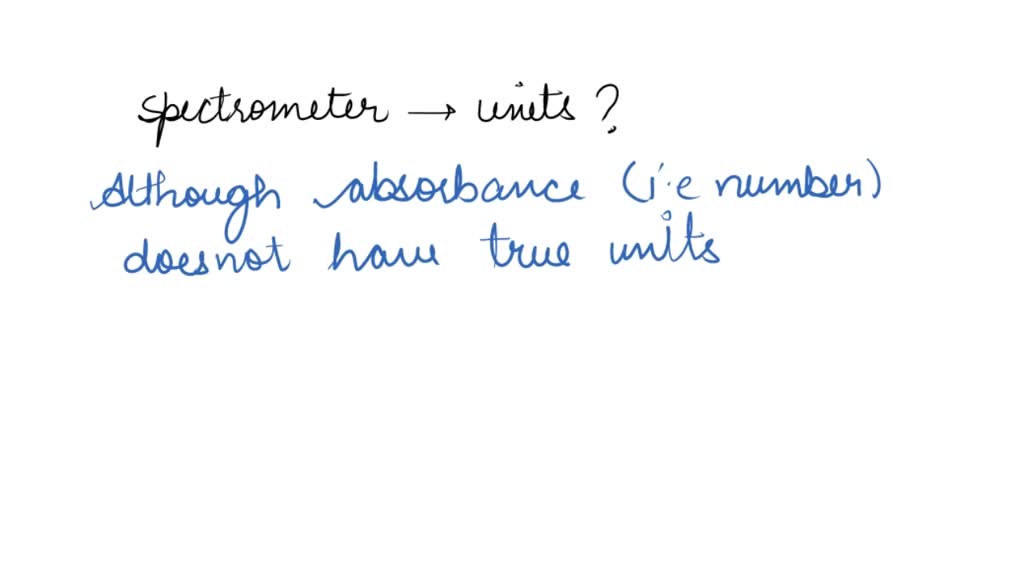 spectrometer → units ?
Although absorbance (i.e number)
does not have true units